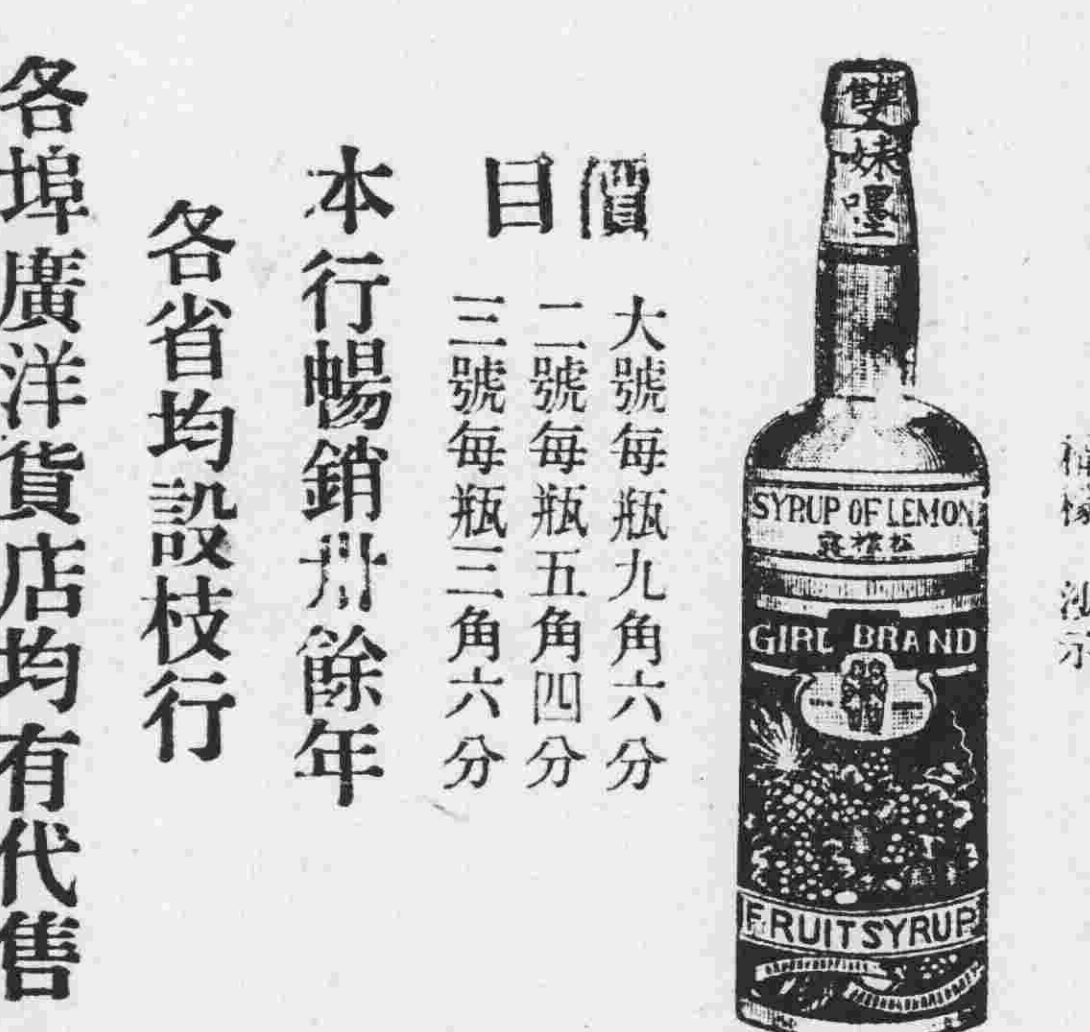 雙妹嚜
SYRUP OF LEMON
GIRL BRAND
FRUIT SYRUP
價目
大號每瓶九角六分
二號每瓶五角四分
三號每瓶三角六分
本行暢銷卅餘年
各省均設枝行
各埠廣洋貨店均有代售